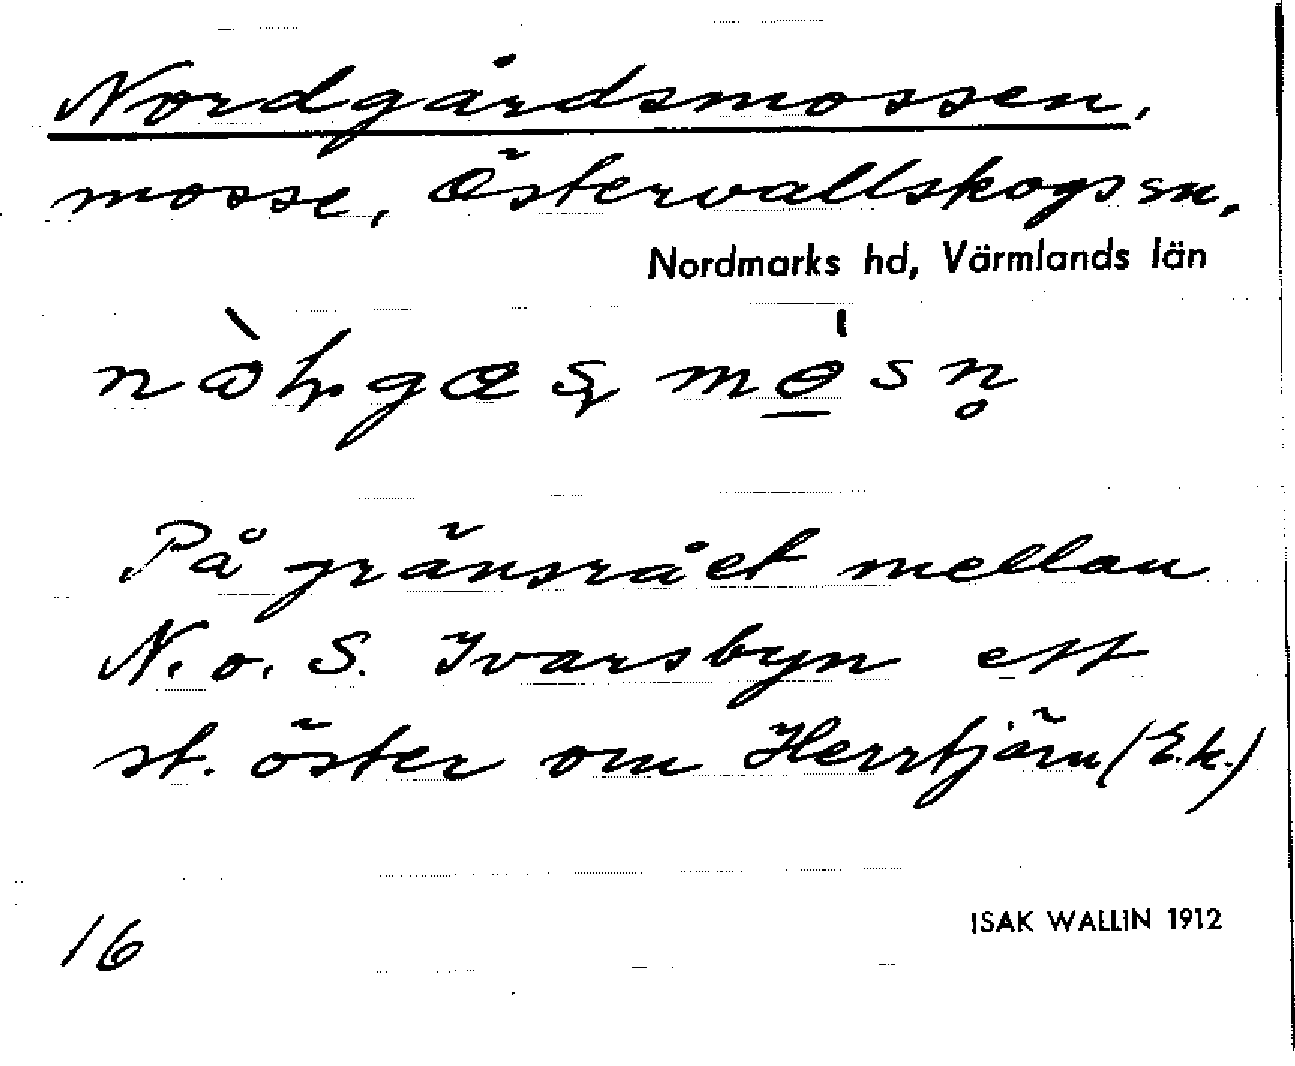 Nordgårdsmossen,
mosse, Östervallskogs sn,
Nordmarks hd, Värmlands län
På gränsrået mellan
N. o. S. Ivarsbyn ett
st. öster om Herrtjärn (E.k.)
16
ISAK WALLIN 1912